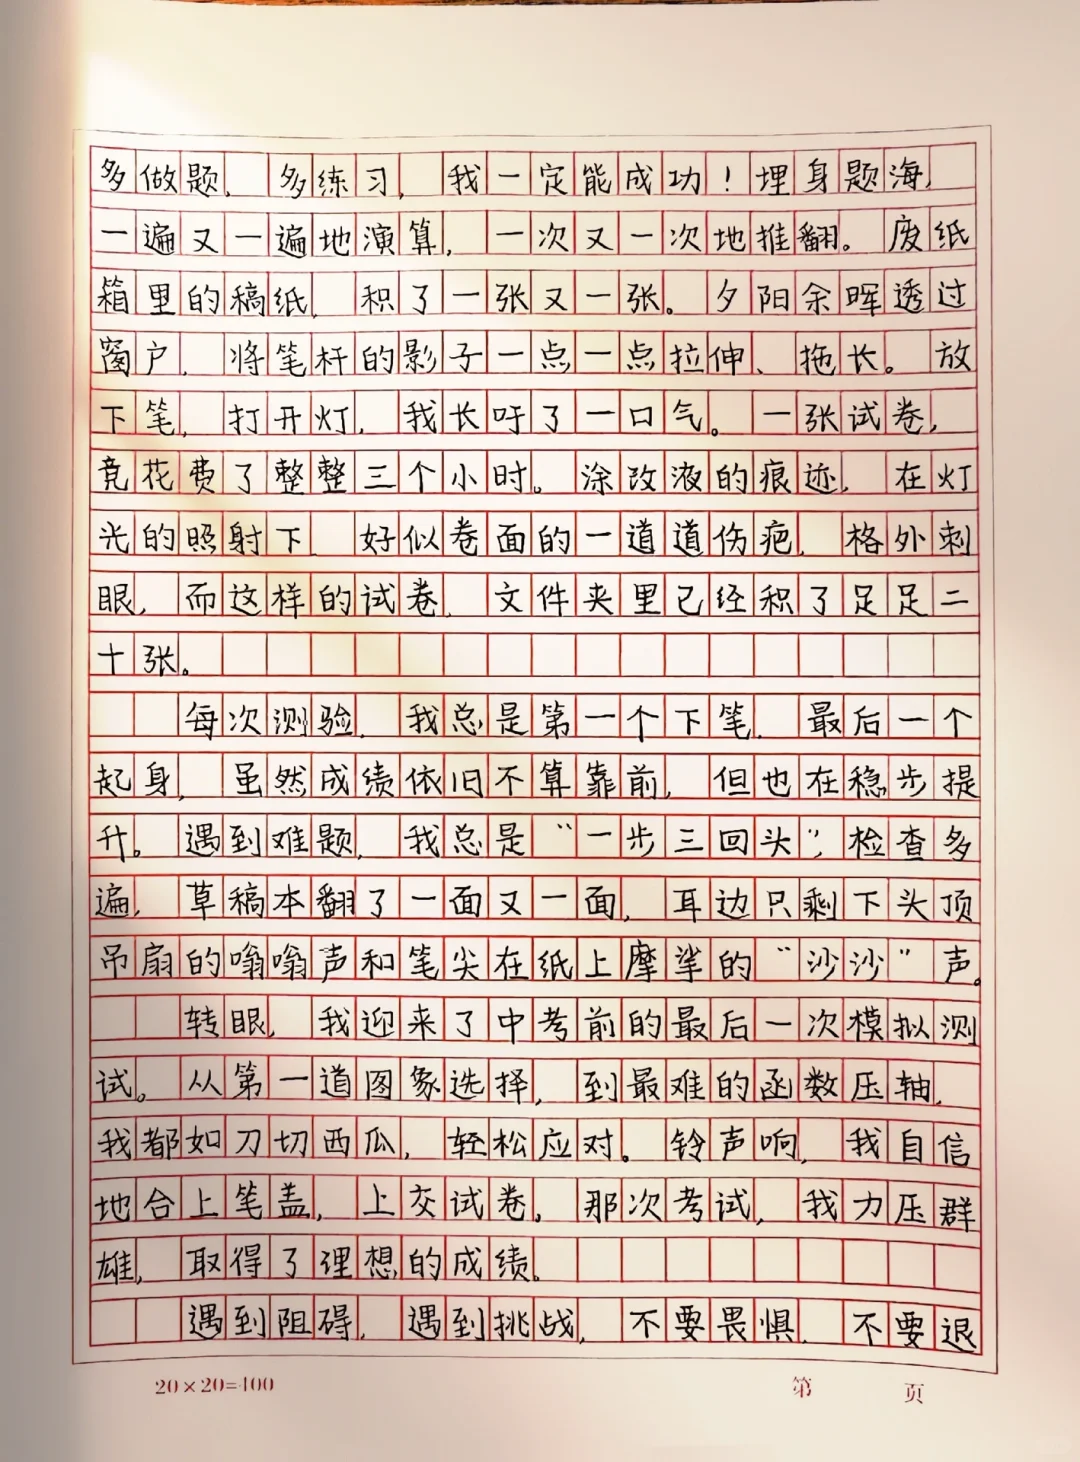 多做题，多练习，我一定能成功！埋身题海，
一遍又一遍地演算，一次又一次地推翻。废纸
箱里的稿纸，积了一张又一张。夕阳余晖透过
窗户，将笔杆的影子一点一点拉伸、拖长。放
下笔，打开灯，我长吁了一口气。一张试卷，
竟花费了整整三个小时。涂改液的痕迹，在灯
光的照射下，好似卷面的一道道伤疤，格外刺
眼，而这样的试卷，文件夹里已经积了足足二
十张。
每次测验，我总是第一个下笔，最后一个
起身，虽然成绩依旧不算靠前，但也在稳步提
升。遇到难题，我总是“一步三回头”，检查多
遍，草稿本翻了一面又一面，耳边只剩下头顶
吊扇的嗡嗡声和笔尖在纸上摩挲的“沙沙”声。
转眼，我迎来了中考前的最后一次模拟测
试。从第一道图象选择，到最难的函数压轴，
我都如刀切西瓜，轻松应对。铃声响，我自信
地合上笔盖，上交试卷。那次考试，我力压群
雄，取得了理想的成绩。
遇到阻碍，遇到挑战，不要畏惧，不要退
20×20=400 第 页